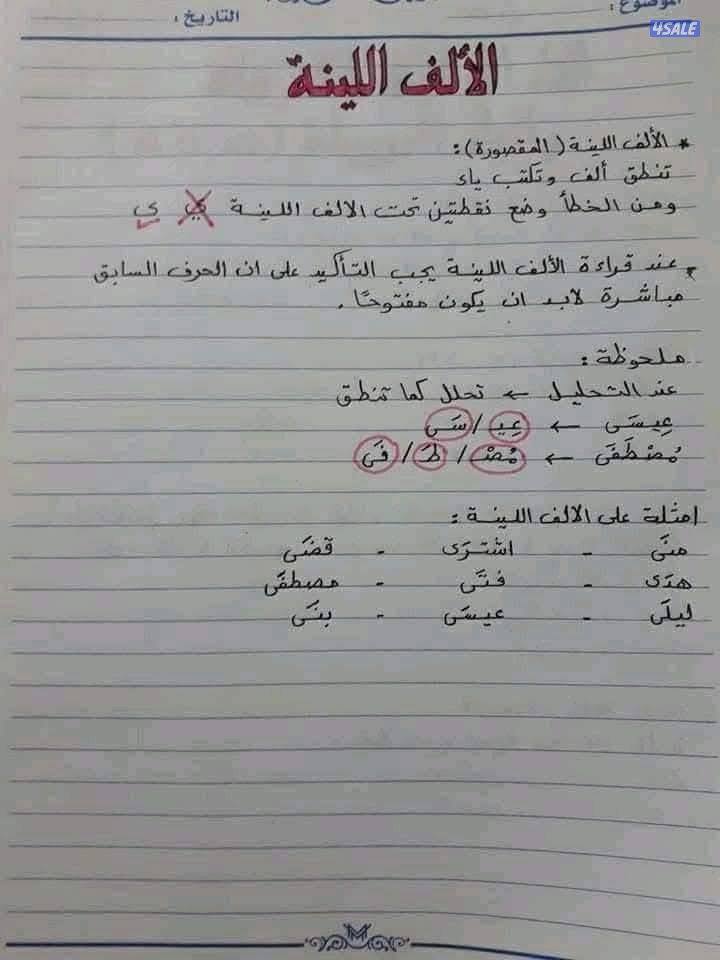 الموضوع :
التاريخ :
4SALE
الألف اللينة
* الألف اللينة (المقصورة):
تنطق ألف وتكتب ياء
ومن الخطأ وضع نقطتين تحت الالف اللينة ي ى
* عند قراءة الألف اللينة يجب التأكيد على ان الحرف السابق
مباشرة لابد ان يكون مفتوحًا .
ملحوظة :
عند التحليل ← تحلل كما تنطق
عِيسَى ← عِيـ / سَى
مُصْطَفَى ← مُصْـ / طَـ / فَى
امثلة على الالف اللينة :
منَى - اشترَى - قضَى
هدَى - فتَى - مصطفَى
ليلَى - عيسَى - بنَى